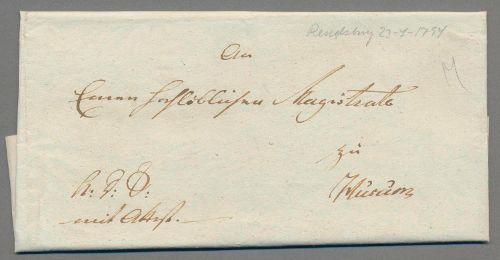 Rendsburg 23-1-1794
An
Einen Hochlöblichen Magistrate
zu
Husum
mit Attest.